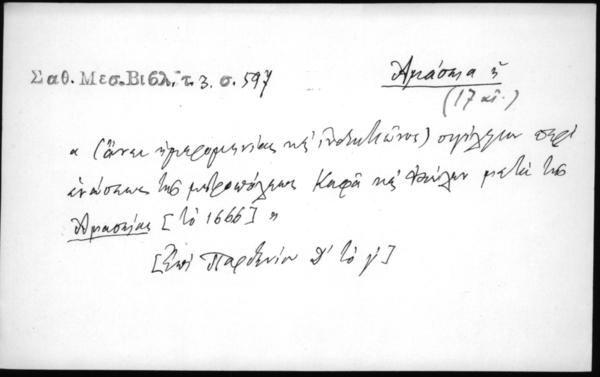 Σαθ. Μεσ. Βιβλ. τ. 3. σ. 597
Ἀμάσεια ἡ
(17 αἰ.)
« (ἄνευ ἡμερομηνίας καὶ ἰνδικτιῶνος) σιγίλλιον περὶ
ἑνώσεως τῆς μητροπόλεως Καφᾶ καὶ Φούλλων μετὰ τῆς
Ἀμασείας [τὸ 1666] »
[Ἐπὶ Παρθενίου Δ' τὸ γ']